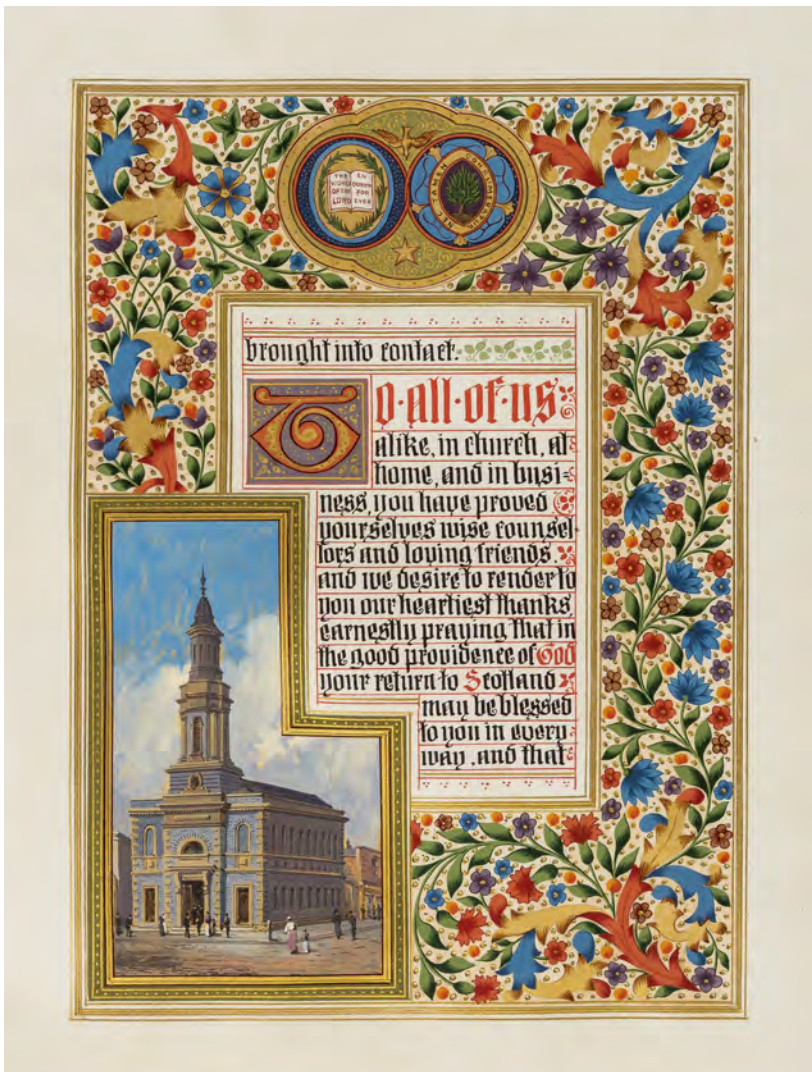 THE WORD OF THE LORD
ENDURETH FOR EVER
NEC TAMEN CONSUMEBATUR
brought into contact.
To·all·of·us
alike, in church, at
home, and in busi-
ness, you have proved
yourselves wise counsel
lors and loving friends.
and we desire to render to
you our heartiest thanks,
earnestly praying that in
the good providence of God
your return to Scotland
may be blessed
to you in every
way, and that